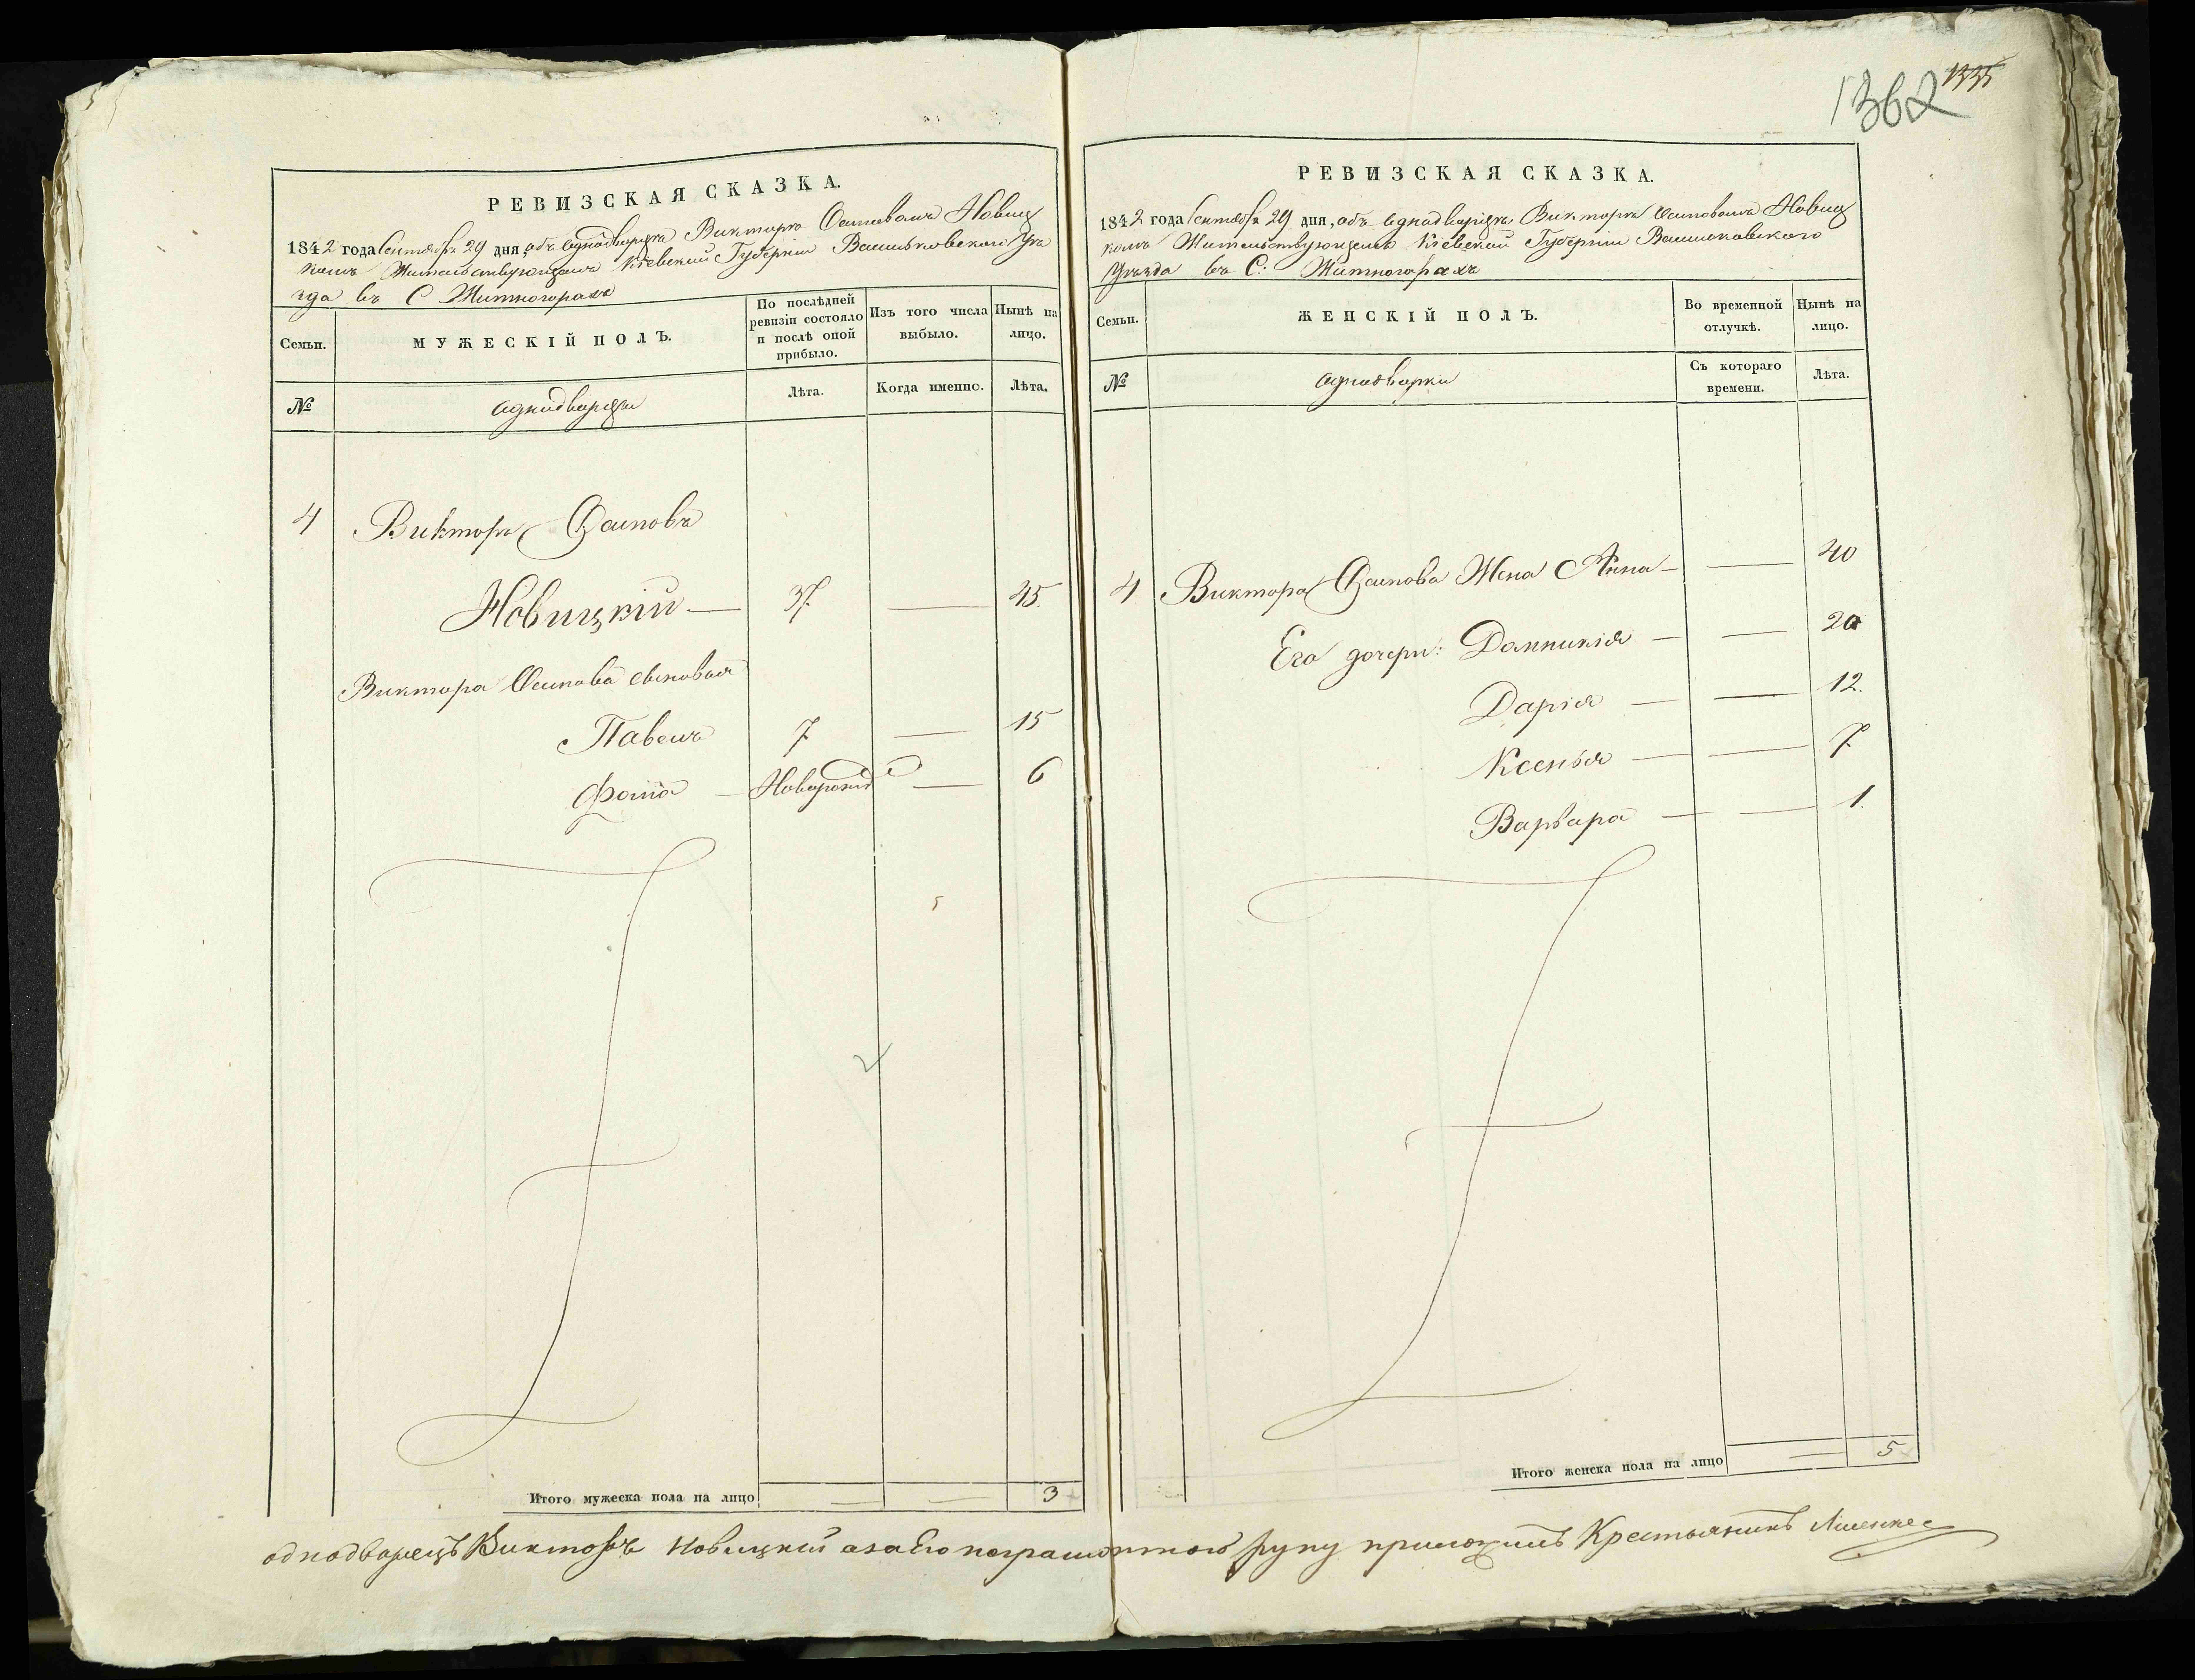 1362 1335
РЕВИЗСКАЯ СКАЗКА.
1842 года Сентября 29 дня, объ однодворцѣ Викторѣ Осиповомъ Новиц
комъ Жительствующемъ Кіевской Губерніи Васильковскаго Уѣ
зда въ С Житногорахъ
Семьи.
МУЖЕСКІЙ ПОЛЪ.
По послѣдней
ревизіи состояло
и послѣ оной
прибыло.
Изъ того числа
выбыло.
Нынѣ на
лицо.
№
однодворцы
Лѣта.
Когда именно.
Лѣта.
4 Викторъ Осиповъ
Новицкій — 37. — 45.
Виктора Осипова сыновья
Павелъ 7 — 15
Фома — Новорожд — 6
Итого мужеска пола на лицо — — 3
РЕВИЗСКАЯ СКАЗКА.
1842 года Сентября 29 дня, объ однодворцѣ Викторѣ Осиповомъ Новиц
комъ Жительствующемъ Кіевской Губерніи Васильковскаго
Уѣзда въ С: Житногорахъ
Семьи.
ЖЕНСКІЙ ПОЛЪ.
Во временной
отлучкѣ.
Нынѣ на
лицо.
№
однодворки
Съ котораго
времени.
Лѣта.
4 Виктора Осипова Жена Анна — — 40
Его дочери: Домникія — — 20
Дарія — — 12.
Ксенья — — 7.
Варвара — — 1.
Итого женска пола на лицо — 5
однодворецъ Викторъ Новицкий а за Его неграмотного руку приложилъ Крестьянинъ